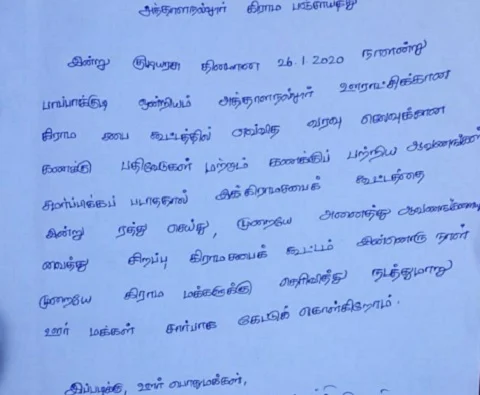 அத்தாளநல்லூர் கிராம பஞ்சாயத்து
இன்று குடியரசு தினமான 26.1.2020 நாளன்று
பாப்பாக்குடி ஒன்றியம் அத்தாளநல்லூர் ஊராட்சிக்கான
கிராம சபை கூட்டத்தில் எவ்வித வரவு செலவுக்கான
கணக்கு பதிவேடுகள் மற்றும் கணக்குப் பற்றிய ஆவணங்கள்
சமர்ப்பிக்கப் படாததால் இக்கிராமசபைக் கூட்டத்தை
இன்று ரத்து செய்து, முறையே அனைத்து ஆவணங்களையும்
வைத்து சிறப்பு கிராமசபைக் கூட்டம் இன்னொரு நாள்
முறையே கிராம மக்களுக்கு தெரிவித்து நடத்துமாறு
ஊர் மக்கள் சார்பாக கேட்டுக் கொள்கிறோம்.
இப்படிக்கு, ஊர் பொதுமக்கள்,